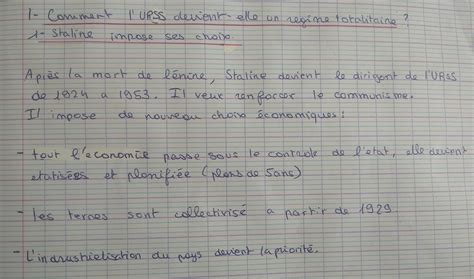 1- Comment l'URSS devient-elle un regime totalitaire ?
1- Staline impose ses choix.
Après la mort de lénine, Staline devient le dirigeant de l'URSS
de 1924 a 1953. Il veut renforcer le communisme.
Il impose de nouveau choix économiques :
- tout l'économie passe sous le controle de l'état, elle devient
etatisées et planifiée (plans de 5ans)
- les terres sont collectivisé a partir de 1929.
- L'industrielisation du pays devient la priorité.